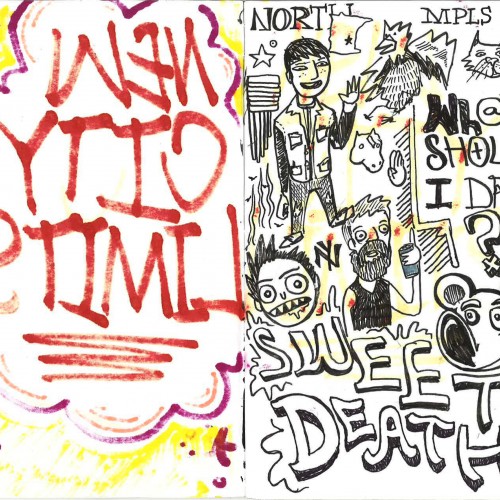 NEW
CITY
LIMITS
NORTH MPLS
Who
SHOU
I DR
?
SWEET
DEATH